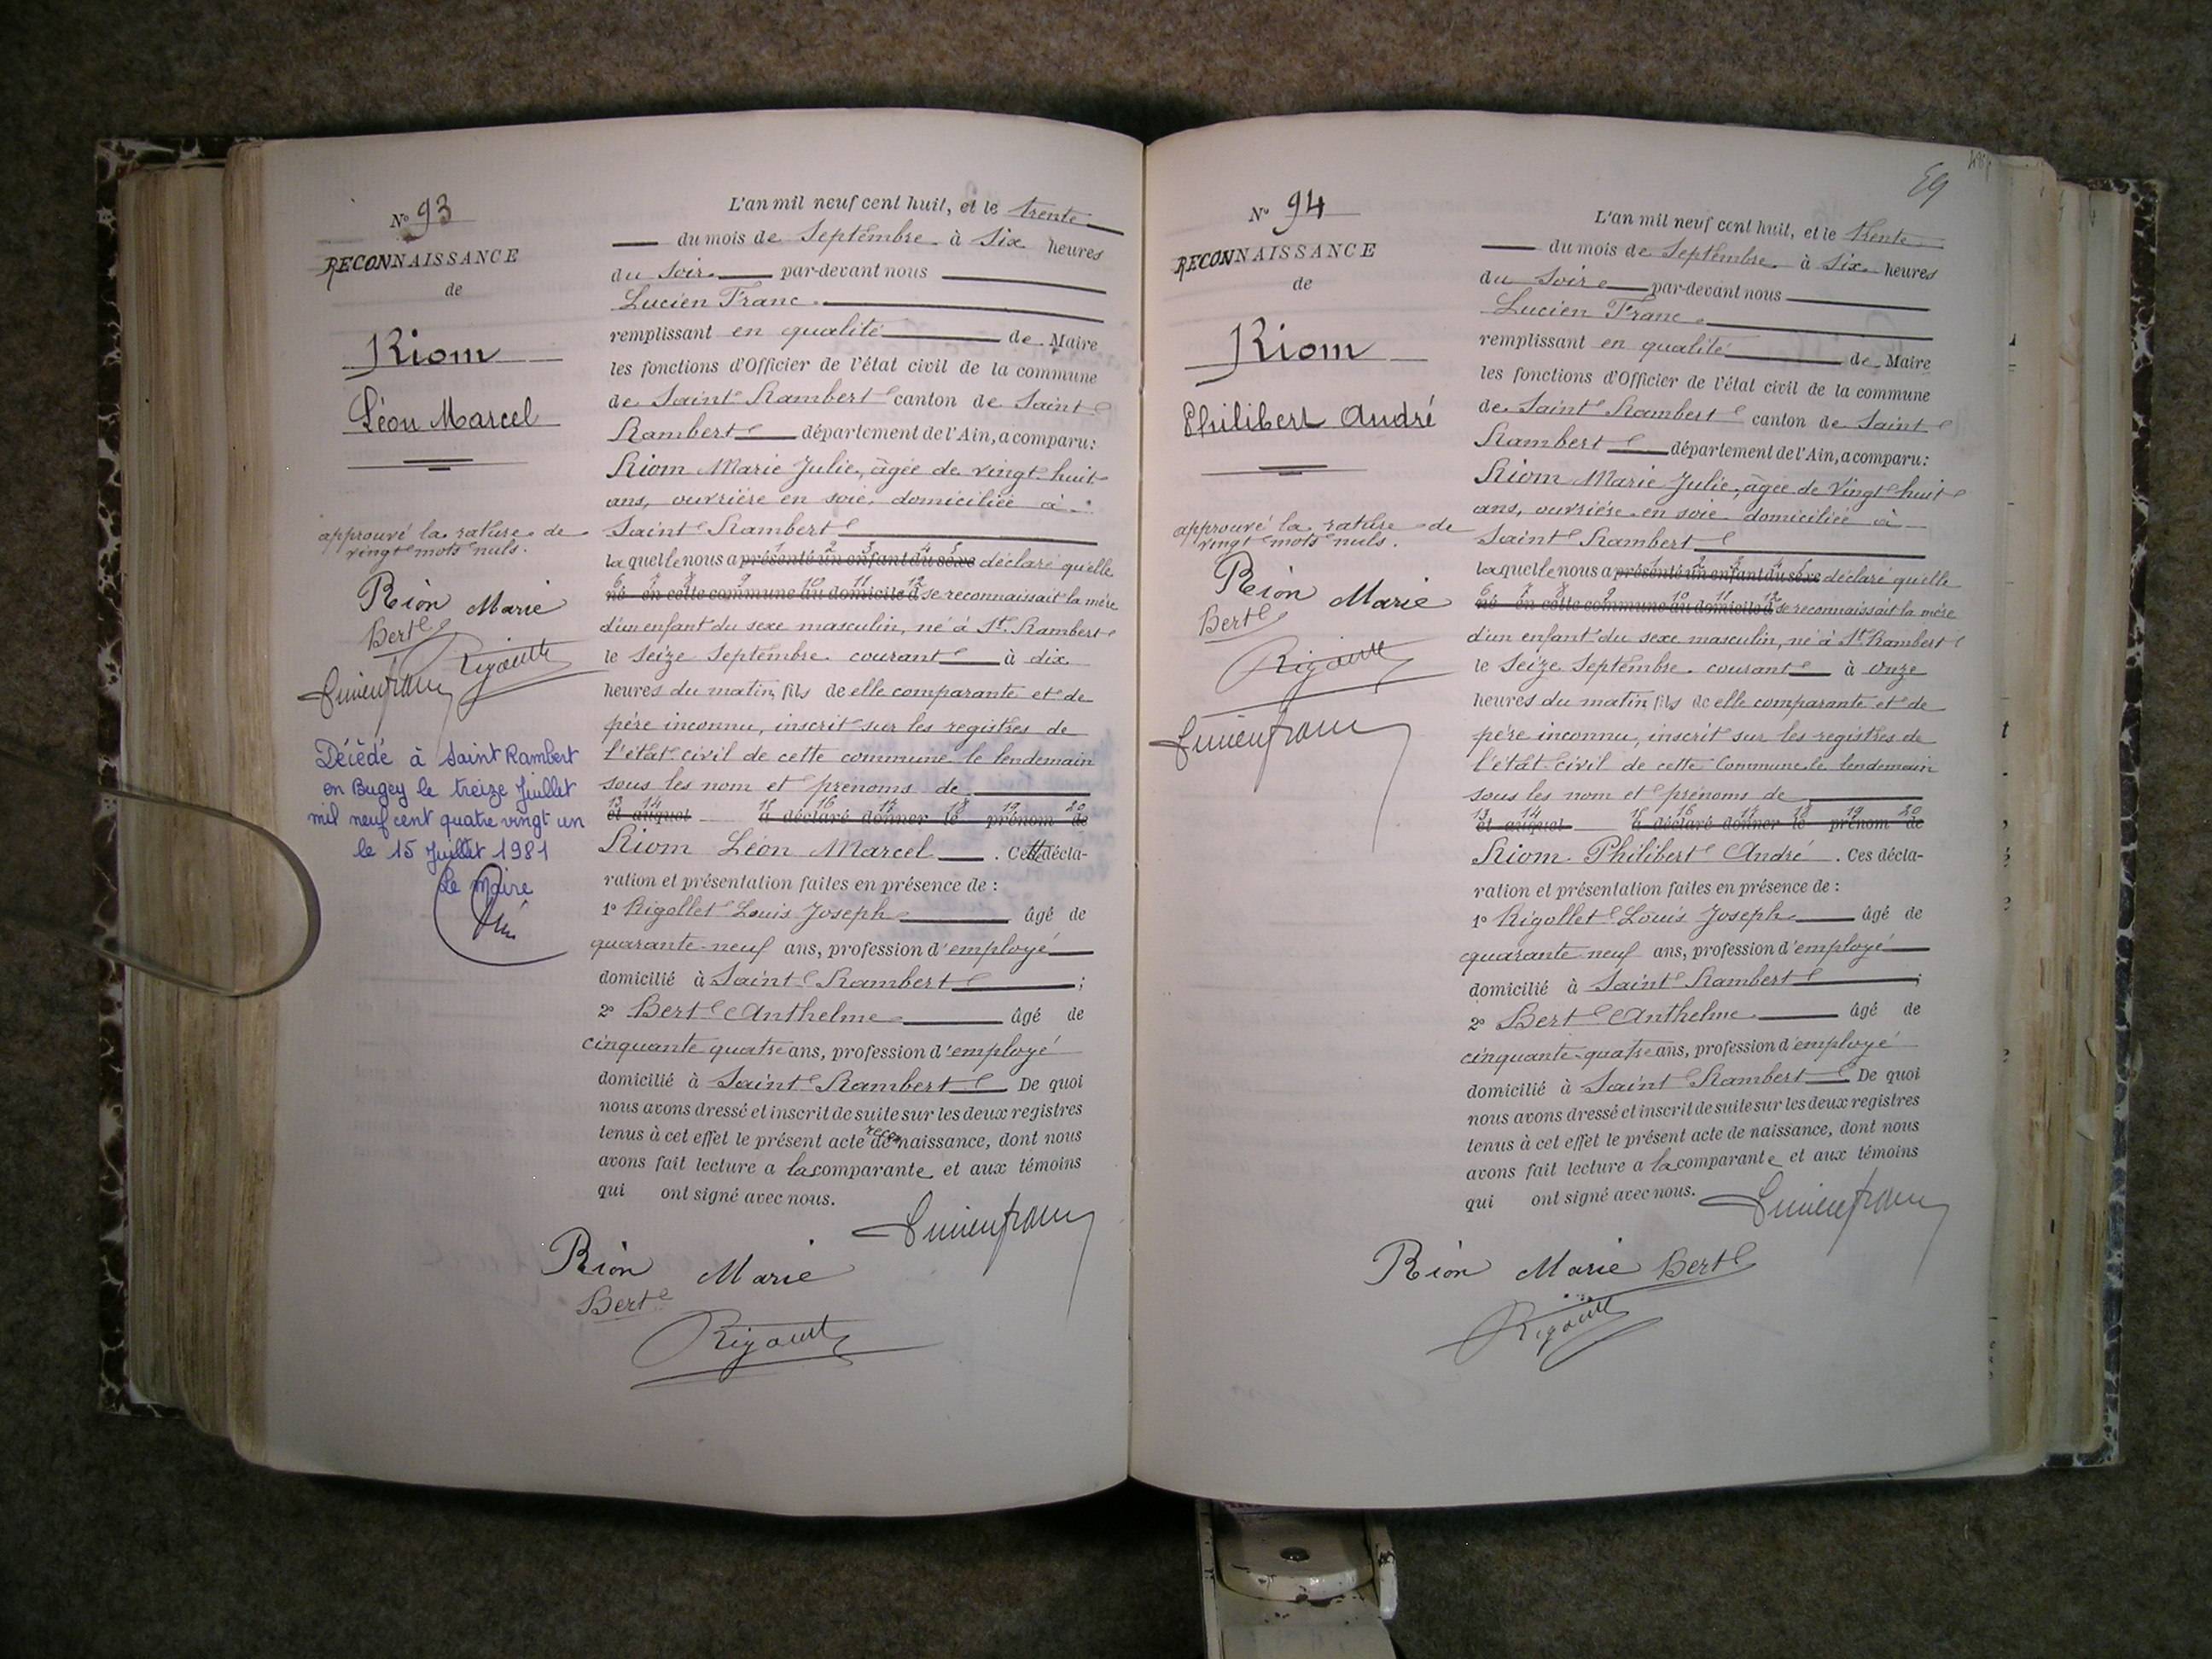 N° 93
RECONNAISSANCE
de
Riom
Léon Marcel
approuvé la rature de
vingt mots nuls.
Rion Marie
Bert
Décédé à Saint Rambert
en Bugey le treize Juillet
mil neuf cent quatre vingt un
le 15 Juillet 1981
Le Maire
L'an mil neuf cent huit, et le trente
du mois de Septembre à Six heures
du Soir par-devant nous
Lucien Franc
remplissant en qualité de Maire
les fonctions d'Officier de l'état civil de la commune
de Saint Rambert canton de Saint
Rambert département de l'Ain, a comparu :
Riom Marie Julie, âgée de vingt-huit
ans, ouvrière en soie, domiciliée à
Saint Rambert
laquelle nous a présenté un enfant du sexe déclaré qu'elle
1 2 3 4 5
né en cette commune au domicile d se reconnaissait la mère
6 7 8 9 10 11 12
d'un enfant du sexe masculin, né à St. Rambert
le Seize Septembre courant à dix
heures du matin, fils de elle comparante et de
père inconnu, inscrit sur les registres de
l'état civil de cette commune le lendemain
sous les nom et prénoms de
13 14 15 16 17 18 19 20
et auquel a déclaré donner le prénom de
Riom Léon Marcel . Cette décla-
ration et présentation faites en présence de :
1° Rigollet Louis Joseph âgé de
quarante-neuf ans, profession d'employé
domicilié à Saint Rambert ;
2° Bert Anthelme âgé de
cinquante quatre ans, profession d'employé
domicilié à Saint Rambert De quoi
nous avons dressé et inscrit de suite sur les deux registres
tenus à cet effet le présent acte de recon naissance, dont nous
avons fait lecture a la comparante et aux témoins
qui ont signé avec nous.
Lucien Franc
Rion Marie
Bert
N° 94
RECONNAISSANCE
de
Riom
Philibert André
approuvé la rature de
vingt mots nuls.
Rion Marie
Bert
Lucien Franc
59
L'an mil neuf cent huit, et le trente
du mois de Septembre à Six heures
du Soir par-devant nous
Lucien Franc
remplissant en qualité de Maire
les fonctions d'Officier de l'état civil de la commune
de Saint Rambert canton de Saint
Rambert département de l'Ain, a comparu :
Riom Marie Julie, âgée de Vingt huit
ans, ouvrière en soie domiciliée à
Saint Rambert
laquelle nous a présenté un enfant du sexe déclaré qu'elle
1 2 3 4 5
né en cette commune au domicile d se reconnaissait la mère
6 7 8 9 10 11 12
d'un enfant du sexe masculin, né à St. Rambert
le Seize Septembre courant à onze
heures du matin, fils de elle comparante et de
père inconnu, inscrit sur les registres de
l'état civil de cette Commune le lendemain
sous les nom et prénoms de
13 14 15 16 17 18 19 20
et auquel a déclaré donner le prénom de
Riom Philibert André . Ces décla-
ration et présentation faites en présence de :
1° Rigollet Louis Joseph âgé de
quarante neuf ans, profession d'employé
domicilié à Saint Rambert ;
2° Bert Anthelme âgé de
cinquante-quatre ans, profession d'employé
domicilié à Saint Rambert De quoi
nous avons dressé et inscrit de suite sur les deux registres
tenus à cet effet le présent acte de naissance, dont nous
avons fait lecture a la comparante et aux témoins
qui ont signé avec nous.
Lucien Franc
Rion Marie Bert